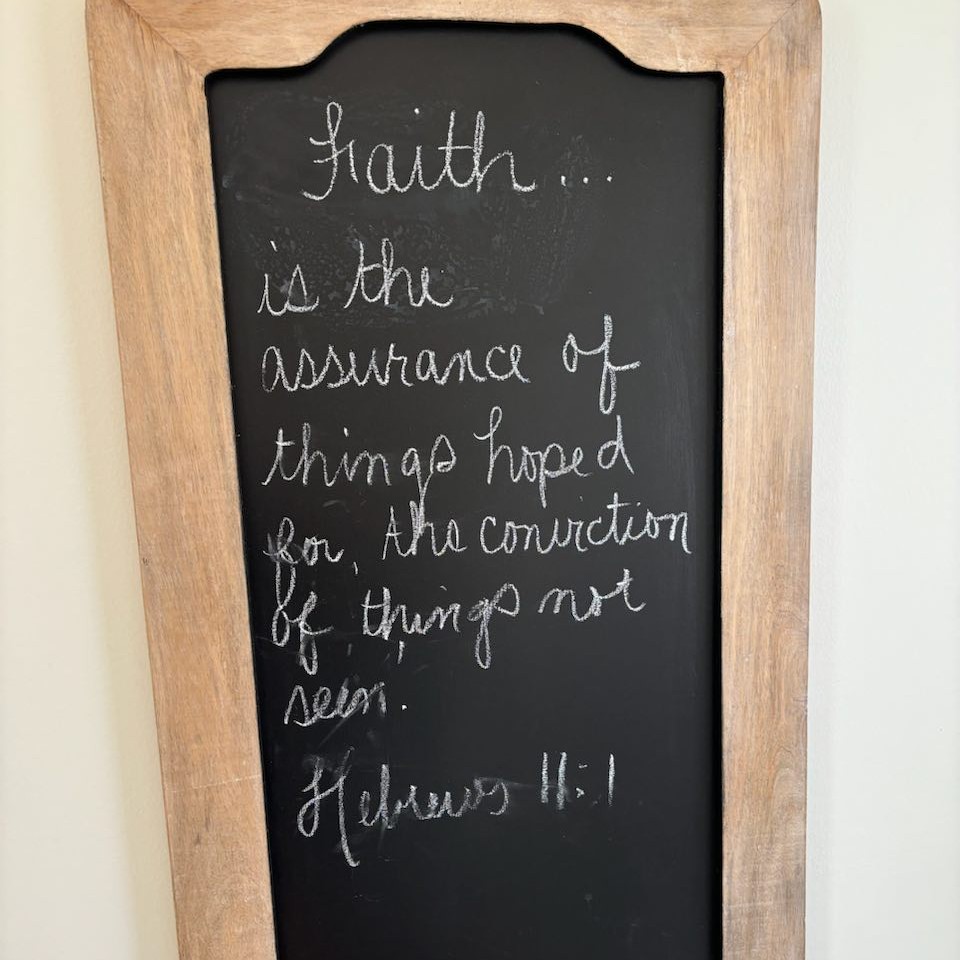 Faith...
is the
assurance of
things hoped
for, the conviction
of things not
seen.
Hebrews 11:1